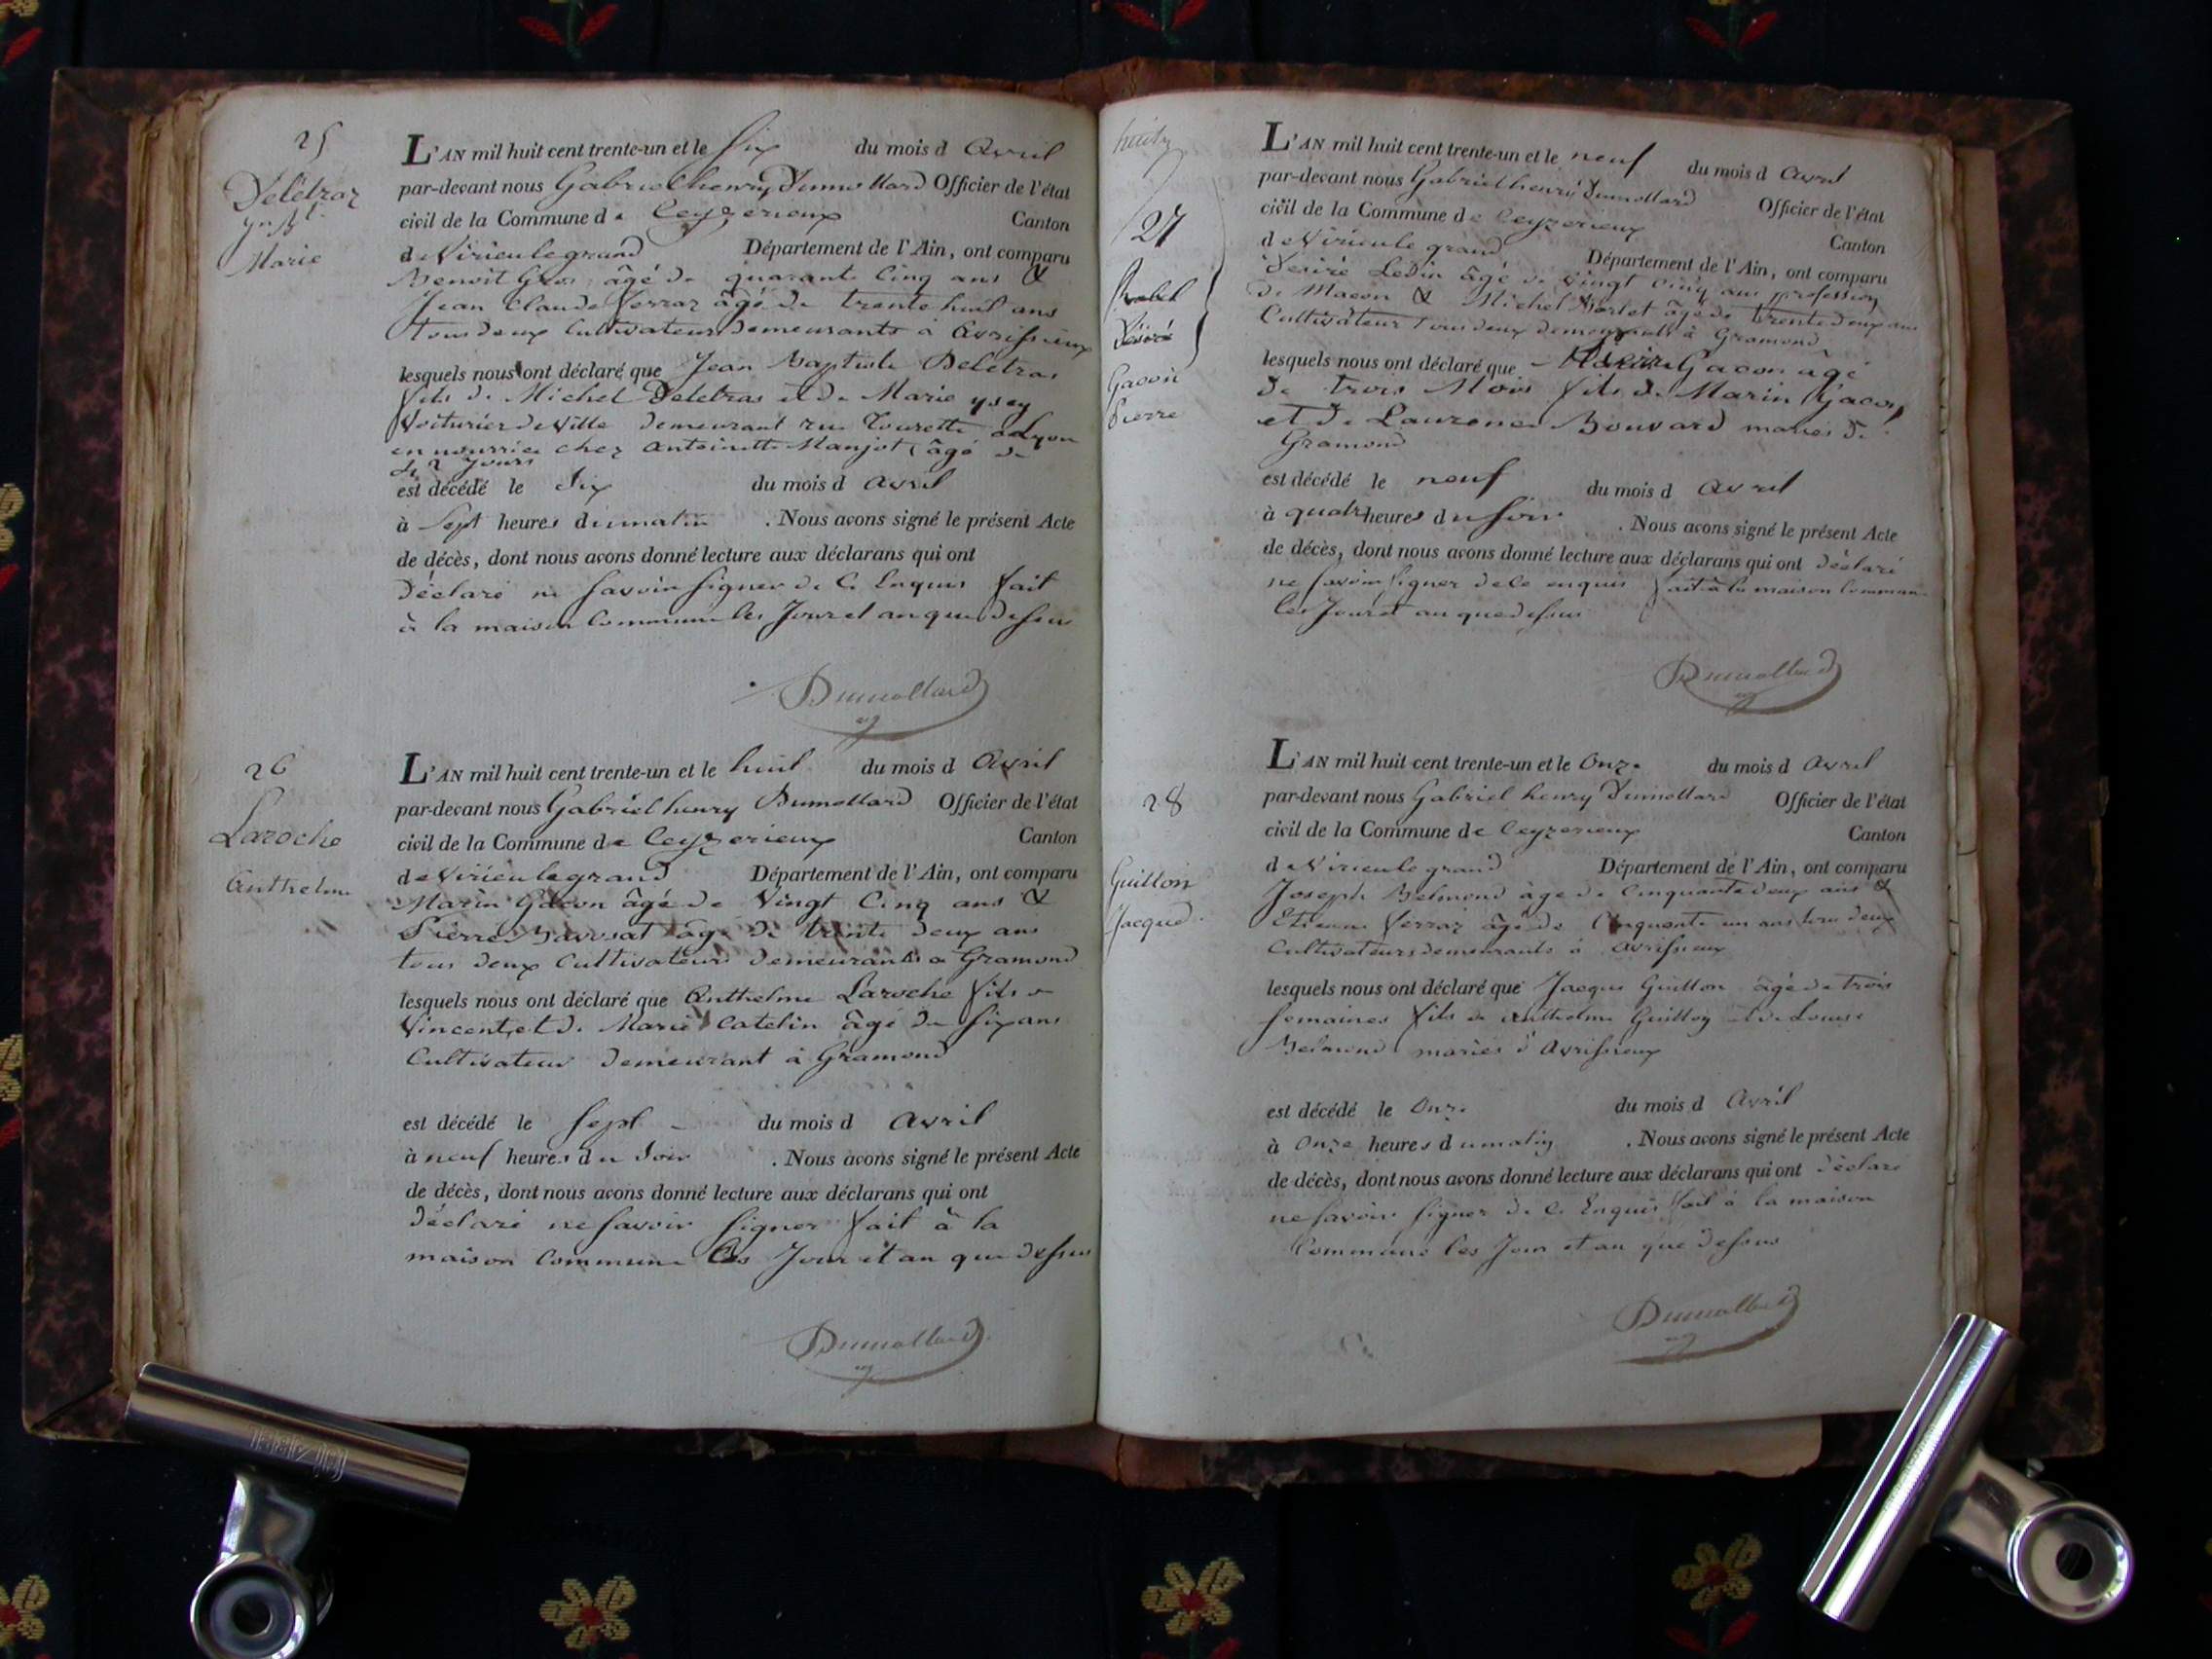 25
Delétraz
Marie
L'AN mil huit cent trente-un et le six du mois d Avril
par-devant nous Gabriel henry Dumollard Officier de l'état
civil de la Commune de Ceyzerieux Canton
de Virieulegrand Département de l'Ain, ont comparu
Benoit Gros âgé de quarante Cinq ans &
Jean Claude Verraz âgé de trente huit ans
tous deux Cultivateurs demeurants à Avrissieux
lesquels nous ont déclaré que Jean Baptiste Delétras
fils de Michel Deletras et de Marie ysey
Voiturier de Ville demeurant rue Tourette à Lyon
en nourrice chez Antoinette Manjot âgé de
jours
est décédé le Six du mois d Avril
à Sept heures du matin . Nous avons signé le présent Acte
de décès, dont nous avons donné lecture aux déclarans qui ont
Déclaré ne Savoir Signer de Ce Enquis fait
à la maison Commune les Jour et an que dessus
Dumollard
26
Laroche
Anthelme
L'AN mil huit cent trente-un et le huit du mois d Avril
par-devant nous Gabriel henry Dumollard Officier de l'état
civil de la Commune de Ceyzerieux Canton
de Virieulegrand Département de l'Ain, ont comparu
Marin Gacon âgé de Vingt Cinq ans &
Pierre Savosat âgé de trente deux ans
tous deux Cultivateurs demeurants a Gramond
lesquels nous ont déclaré que Anthelme Laroche fils de
Vincent, et de Marie Catelin âgé de six ans
Cultivateur demeurant à Gramond
est décédé le Sept du mois d Avril
à neuf heures du Soir . Nous avons signé le présent Acte
de décès, dont nous avons donné lecture aux déclarans qui ont
Déclaré ne Savoir Signer fait à la
maison Commune les Jour et an que dessus
Dumollard
huit
27
Désiré
Gacon
Pierre
L'AN mil huit cent trente-un et le neuf du mois d Avril
par-devant nous Gabriel henry Dumollard Officier de l'état
civil de la Commune de Ceyzerieux Canton
de Virieule grand Département de l'Ain, ont comparu
Desiré Ledin âgé de Vingt cinq ans profession
de Macon & Michel Borlet âgé de trente deux ans
Cultivateur tous deux demeurants à Gramond
lesquels nous ont déclaré que Pierre Gacon âgé
de trois Mois fils de Marin Gacon
et de Laurence Bouvard mariés de
Gramond
est décédé le neuf du mois d Avril
à quatre heures du Soir . Nous avons signé le présent Acte
de décès, dont nous avons donné lecture aux déclarans qui ont déclaré
ne Savoir Signer de Ce enquis fait à la maison Commune
les Jour et an que dessus
Dumollard
28
Guillon
Jacque
L'AN mil huit cent trente-un et le Onze du mois d Avril
par-devant nous Gabriel henry Dumollard Officier de l'état
civil de la Commune de Ceyzerieux Canton
de Virieule grand Département de l'Ain, ont comparu
Joseph Belmond âgé de Cinquante deux ans &
Etienne Verraz âgé de Cinquante un ans tous deux
Cultivateurs demeurants à Avrissieux
lesquels nous ont déclaré que Jacque Guillon âgé de trois
semaines fils de Anthelme Guillon et de Louise
Belmond mariés à Avrissieux
est décédé le Onze du mois d Avril
à Onze heures du matin . Nous avons signé le présent Acte
de décès, dont nous avons donné lecture aux déclarans qui ont déclaré
ne Savoir Signer de Ce Enquis fait à la maison
Commune les Jour et an que dessus
Dumollard